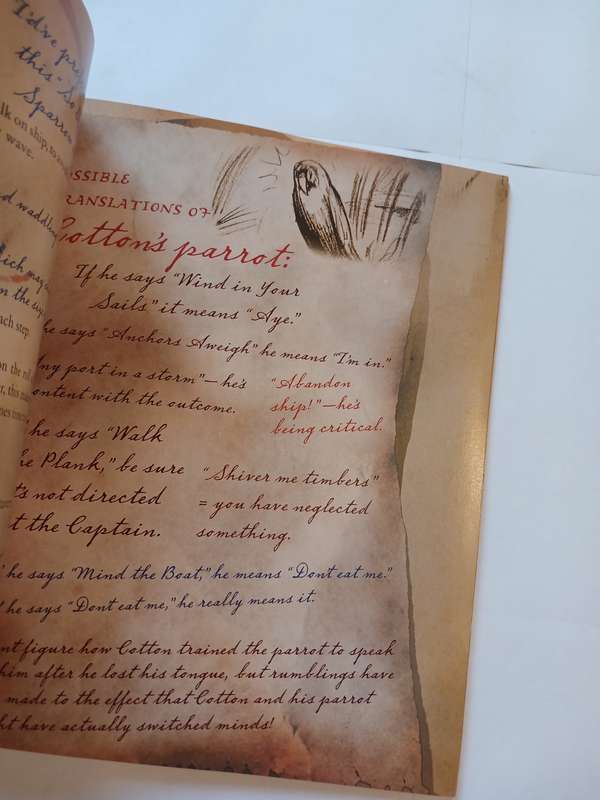 "I'd've pre
this - So
Sparrow
lk on ship, to a
wave.
d waddling
ich may
n the sup
ach step
on the
OSSIBLE
RANSLATIONS OF
Cotton's parrot:
If he says "Wind in Your
Sails" it means "Aye."
he says "Anchors Aweigh" he means "I'm in."
ny port in a storm" — he's
ontent with the outcome.
"Abandon
ship!" — he's
being critical.
he says "Walk
he Plank," be sure
t's not directed
t the Captain.
"Shiver me timbers"
= you have neglected
something.
he says "Mind the Boat," he means "Dont eat me."
he says "Dont eat me," he really means it.
nt figure how Cotton trained the parrot to speak
him after he lost his tongue, but rumblings have
made to the effect that Cotton and his parrot
ht have actually switched minds!